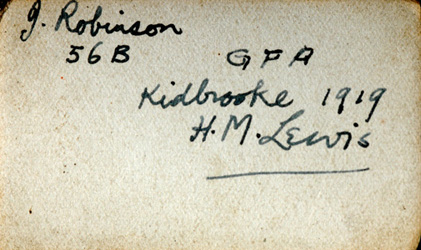 J. Robinson
56B GFA
Kidbrooke 1919
H.M. Lewis